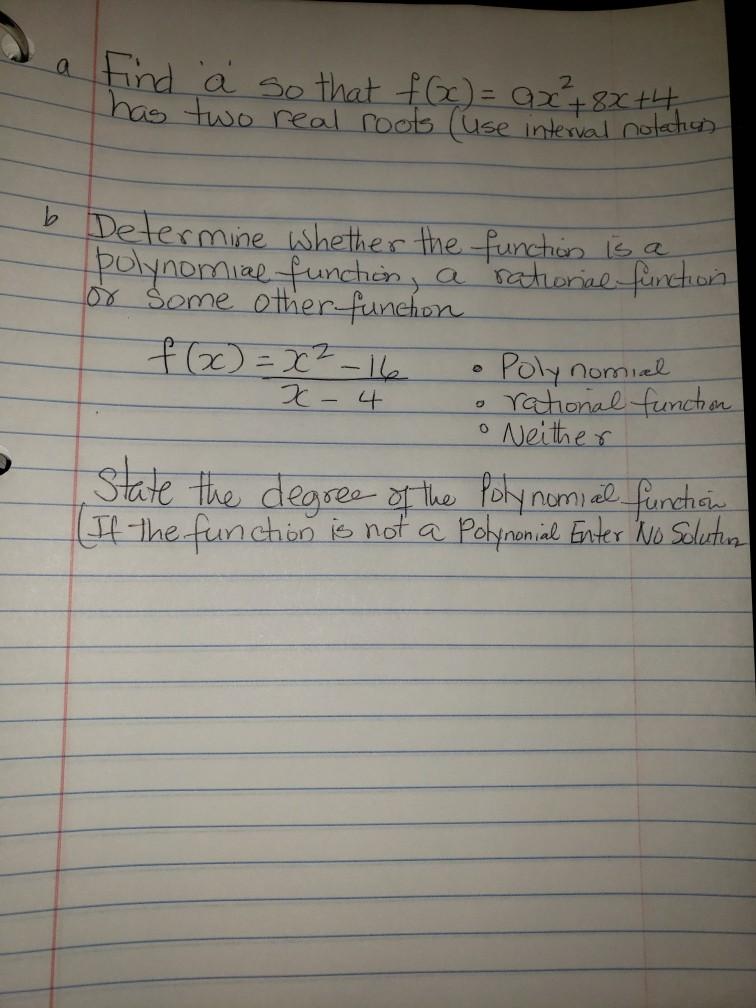 a Find 'a' so that f(x) = ax²+8x+4
has two real roots (Use interval notation
b Determine whether the function is a
polynomial function, a rational function
or some other function
f(x) = x² - 16 • Polynomial
x - 4 • rational function
• Neither
State the degree of the Polynomial function
(If the function is not a Polynomial Enter No Solution